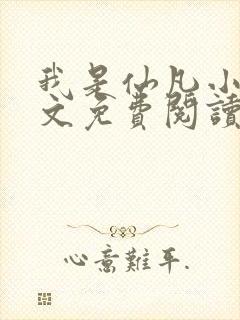 我是仙凡小
文免费閱讀
心意難平.